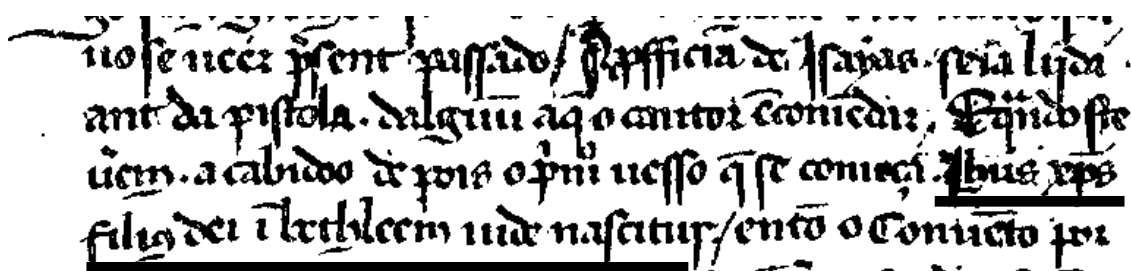 uo se uéér p̃sent passado / A pfficia de Isayas. seia lijda
ant da pistola. dalguũ aq̃ o cantor ẽcomẽdar, E qñdo ste
uẽm. acabado depois o pⁱmº uesso q̃ se comeca. Ihus xp̃s
filius dei ĩ bethleem iude nascitur / entõ o Conuẽto por